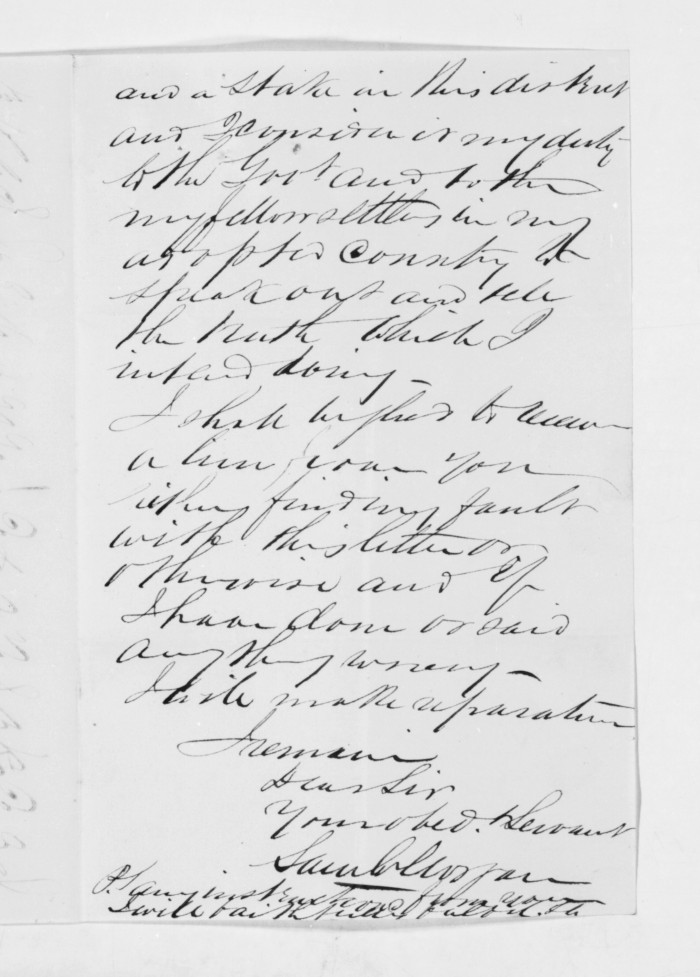 and a stake in this district
and I consider it my duty
to the Govt and to the
my fellow settlers in my
adopted Country to
speak out and tell
the truth which I
intend doing—
I shall be glad to receive
a line from you
either finding fault
with this letter or
otherwise and if
I have done or said
anything wrong—
I will make reparation
I remain
Dear Sir
Your obed. Servant
Saml Morgan
P.S any instructions from you
I will faithfully